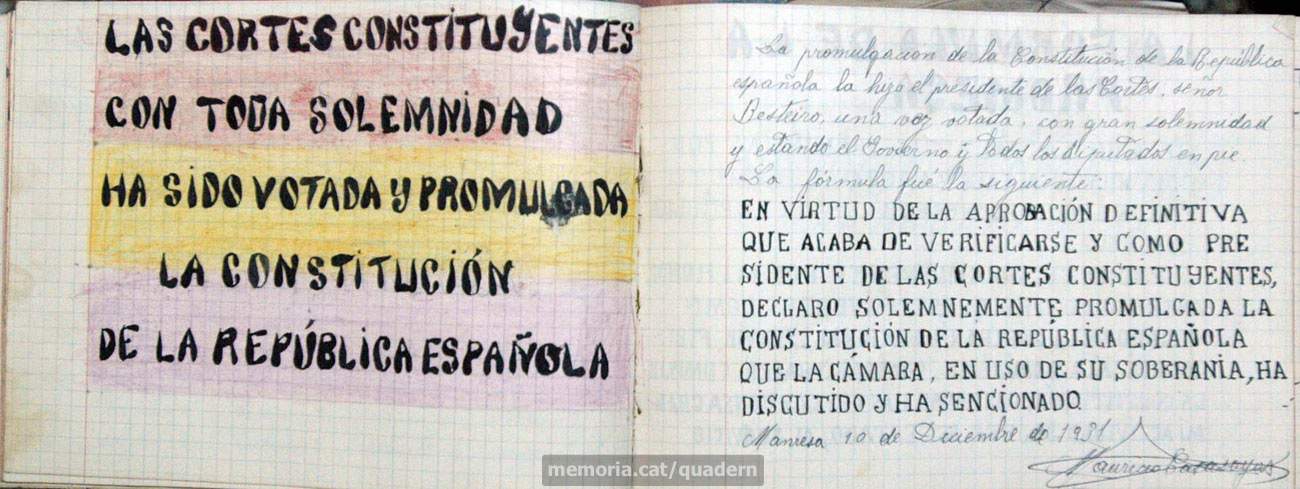 LAS CORTES CONSTITUYENTES
CON TODA SOLEMNIDAD
HA SIDO VOTADA Y PROMULGADA
LA CONSTITUCIÓN
DE LA REPÚBLICA ESPAÑOLA
La promulgacion de la Constitución de la República
española la hizo el presidente de las Cortes, señor
Besteiro, una vez votada, con gran solemnidad
y estando el Governo y todos los diputados en pie
La fórmula fué la siguiente:
EN VIRTUD DE LA APROBACIÓN DEFINITIVA
QUE ACABA DE VERIFICARSE Y COMO PRE
SIDENTE DE LAS CORTES CONSTITUYENTES,
DECLARO SOLEMNEMENTE PROMULGADA LA
CONSTITUCIÓN DE LA REPÚBLICA ESPAÑOLA
QUE LA CÁMARA, EN USO DE SU SOBERANIA, HA
DISCUTIDO Y HA SENCIONADO
Manresa 10 de Diciembre de 1931
Mauricio Casasayas
memoria.cat/quadern